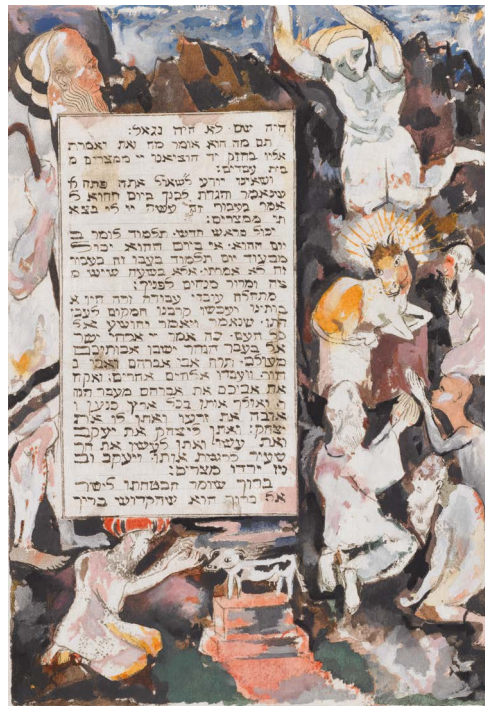 היה שם לא היה נגאל:
תם מה הוא אומר מה זאת ואמרת
אליו בחזק יד הוציאנו יי ממצרים מ
בית עבדים:
ושאינו יודע לשאול אתה פתח ל
שנאמר והגדת לבנך ביום ההוא ל
אמר בעבור זה עשה יי לי בצא
תי ממצרים:
יכול מראש חדש תלמוד לומר ב
יום ההוא אי ביום ההוא יכול
מבעוד יום תלמוד בעבו זה בעבור
זה לא אמרתי אלא בשעה שיש מ
צה ומרור מנחים לפניך:
מתחלה עובדי עבודה זרה היו א
בותינו ועכשו קרבנו המקום לעב
דתו שנאמר ויאמר יהושע אל
כל העם כה אמר יי אלהי ישר
אל בעבר הנהר ישבו אבותיכם
מעולם תרח אבי אברהם ואבי נ
חור ויעבדו אלהים אחרים: ואקח
את אביכם את אברהם מעבר הנה
ואולך אותו בכל ארץ כנען ו
ארבה את זרעו ואתן לו את
יצחק: ואתן ליצחק את יעקב
ואת עשו ואתן לעשו את הר
שעיר לרשת אותו ויעקב וב
ניו ירדו מצרים:
ברוך שומר הבטחתו לישר
אל ברוך הוא שהקדוש בריך